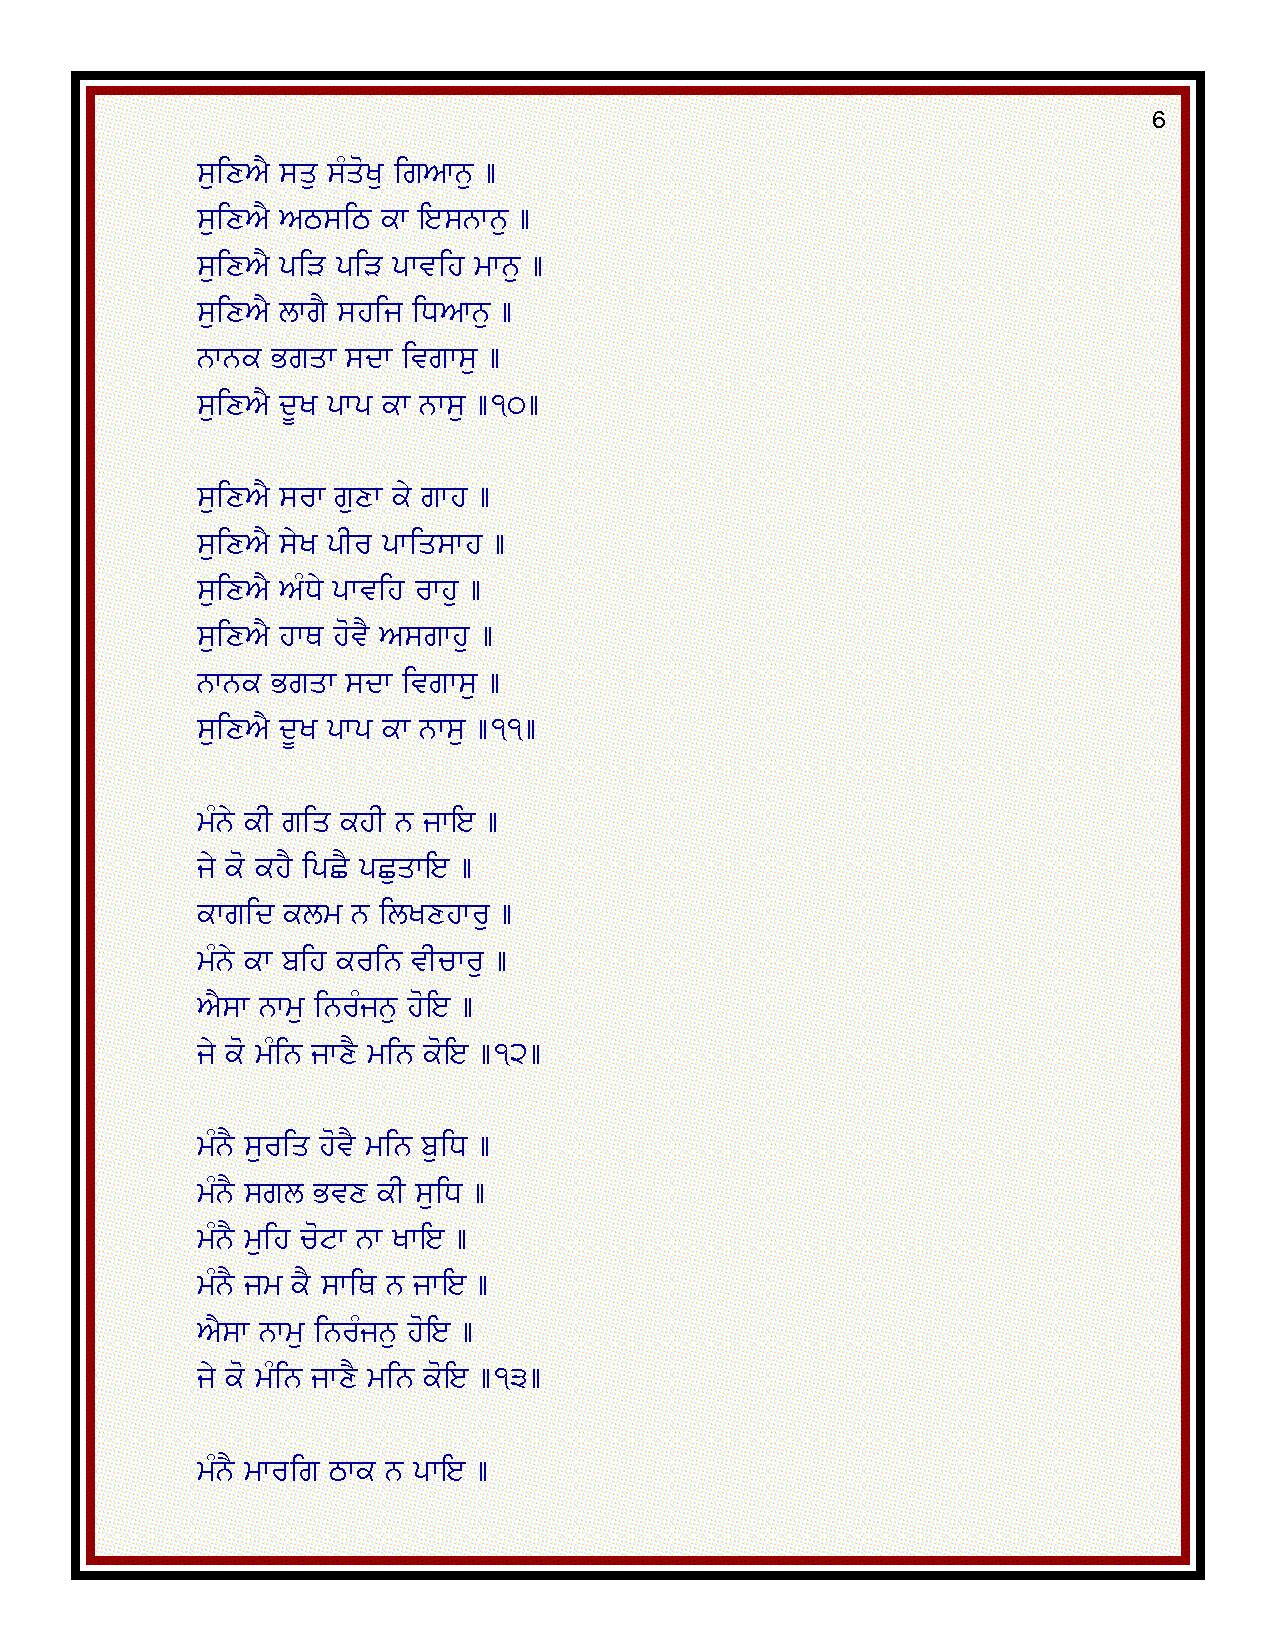 6
ਸੁਣਿਐ ਸਤੁ ਸੰਤੋਖੁ ਗਿਆਨੁ ॥
ਸੁਣਿਐ ਅਠਸਠਿ ਕਾ ਇਸਨਾਨੁ ॥
ਸੁਣਿਐ ਪੜਿ ਪੜਿ ਪਾਵਹਿ ਮਾਨੁ ॥
ਸੁਣਿਐ ਲਾਗੈ ਸਹਜਿ ਧਿਆਨੁ ॥
ਨਾਨਕ ਭਗਤਾ ਸਦਾ ਵਿਗਾਸੁ ॥
ਸੁਣਿਐ ਦੂਖ ਪਾਪ ਕਾ ਨਾਸੁ ॥੧੦॥
ਸੁਣਿਐ ਸਰਾ ਗੁਣਾ ਕੇ ਗਾਹ ॥
ਸੁਣਿਐ ਸੇਖ ਪੀਰ ਪਾਤਿਸਾਹ ॥
ਸੁਣਿਐ ਅੰਧੇ ਪਾਵਹਿ ਰਾਹੁ ॥
ਸੁਣਿਐ ਹਾਥ ਹੋਵੈ ਅਸਗਾਹੁ ॥
ਨਾਨਕ ਭਗਤਾ ਸਦਾ ਵਿਗਾਸੁ ॥
ਸੁਣਿਐ ਦੂਖ ਪਾਪ ਕਾ ਨਾਸੁ ॥੧੧॥
ਮੰਨੇ ਕੀ ਗਤਿ ਕਹੀ ਨ ਜਾਇ ॥
ਜੇ ਕੋ ਕਹੈ ਪਿਛੈ ਪਛੁਤਾਇ ॥
ਕਾਗਦਿ ਕਲਮ ਨ ਲਿਖਣਹਾਰੁ ॥
ਮੰਨੇ ਕਾ ਬਹਿ ਕਰਨਿ ਵੀਚਾਰੁ ॥
ਐਸਾ ਨਾਮੁ ਨਿਰੰਜਨੁ ਹੋਇ ॥
ਜੇ ਕੋ ਮੰਨਿ ਜਾਣੈ ਮਨਿ ਕੋਇ ॥੧੨॥
ਮੰਨੈ ਸੁਰਤਿ ਹੋਵੈ ਮਨਿ ਬੁਧਿ ॥
ਮੰਨੈ ਸਗਲ ਭਵਣ ਕੀ ਸੁਧਿ ॥
ਮੰਨੈ ਮੁਹਿ ਚੋਟਾ ਨਾ ਖਾਇ ॥
ਮੰਨੈ ਜਮ ਕੈ ਸਾਥਿ ਨ ਜਾਇ ॥
ਐਸਾ ਨਾਮੁ ਨਿਰੰਜਨੁ ਹੋਇ ॥
ਜੇ ਕੋ ਮੰਨਿ ਜਾਣੈ ਮਨਿ ਕੋਇ ॥੧੩॥
ਮੰਨੈ ਮਾਰਗਿ ਠਾਕ ਨ ਪਾਇ ॥